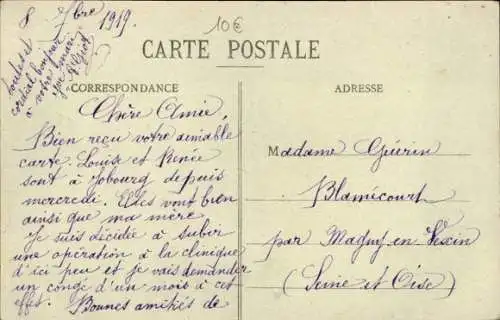 8 7bre 1919.
10€
CARTE POSTALE
CORRESPONDANCE
ADRESSE
toutes et
cordial bonjour
à votre mari
Chère Amie,
Bien reçu votre aimable
carte. Louise et Renée
sont à Jobourg depuis
mercredi. Elles vont bien
ainsi que ma mère.
Je suis décidée à subir
une opération à la clinique
d'ici peu et je vais demander
un congé d'un mois à cet
effet. Bonnes amitiés de
Madame Guérin
Blamécourt
par Magny en Vexin
(Seine et Oise)